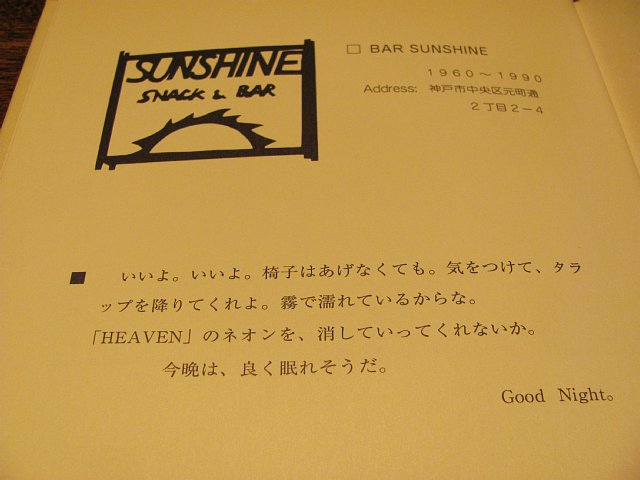 SUNSHINE
SNACK & BAR
□ BAR SUNSHINE
1960～1990
Address: 神戸市中央区元町通
2丁目2－4
■ いいよ。いいよ。椅子はあげなくても。気をつけて、タラ
ップを降りてくれよ。霧で濡れているからな。
「HEAVEN」のネオンを、消していってくれないか。
今晩は、良く眠れそうだ。
Good Night。